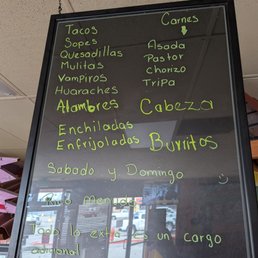 Tacos
Sopes
Quesadillas
Mulitas
Vampiros
Huaraches
Alambres
Enchiladas
Enfrijoladas
Carnes
Asada
Pastor
Chorizo
Tripa
Cabeza
Burritos
Sabado y Domingo
Menudo
Todo lo extra es un cargo
adicional